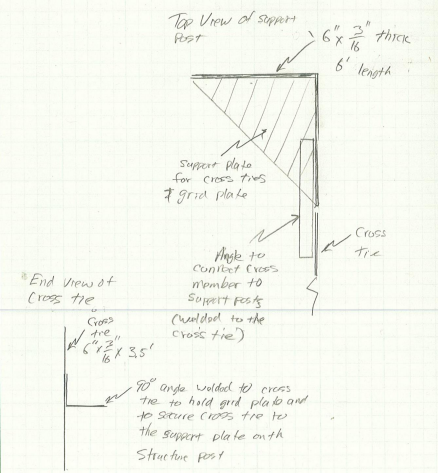 Top View of support
Post
6" x 3/16 thick
6' length
Support plate
for cross ties
& grid plate
Cross
tie
Angle to
connect cross
member to
support posts
(welded to the
cross tie)
End view of
Cross tie
Cross
tie
6" x 3/16 x 3.5'
90° angle welded to cross
tie to hold grid plate and
to secure cross tie to
the support plate on th
Structure post